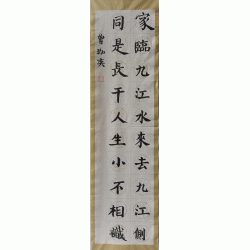 家臨九江水來去九江側
同是長干人生小不相識